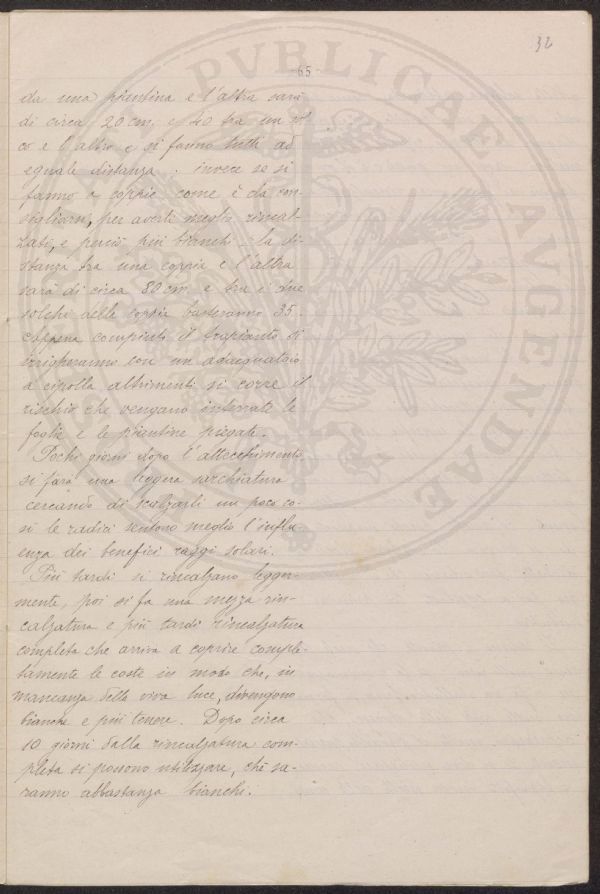 PVBLICAE AVGENDAE
32
-65-
da una piantina e l'altra sarà
di circa 20 cm. e 40 tra un sol
co e l'altro e si fanno tutti ad
eguale distanza; invece se si
fanno a coppie come è da con-
sigliarsi, per averli meglio rincal-
zati, e perciò più bianchi, la di-
stanza tra una coppia e l'altra
sarà di circa 80 cm. e tra i due
solchi delle coppie basteranno 35.
Appena compiuto il trapianto si
irrigheranno con un adacquatoio
a cipolla altrimenti si corre il
rischio che vengano interrate le
foglie e le piantine piegate.
Pochi giorni dopo l'attecchimento
si farà una leggera sarchiatura
cercando di scalzarli un poco co-
sì le radici sentono meglio l'influ-
enza dei benefici raggi solari.
Più tardi si rincalzano legger-
mente, poi si fa una mezza rin-
calzatura e più tardi rincalzatura
completa che arriva a coprire comple-
tamente le coste in modo che, in
mancanza della viva luce, divengono
bianche e più tenere. Dopo circa
10 giorni dalla rincalzatura com-
pleta si possono utilizzare, chè sa-
ranno abbastanza bianchi.